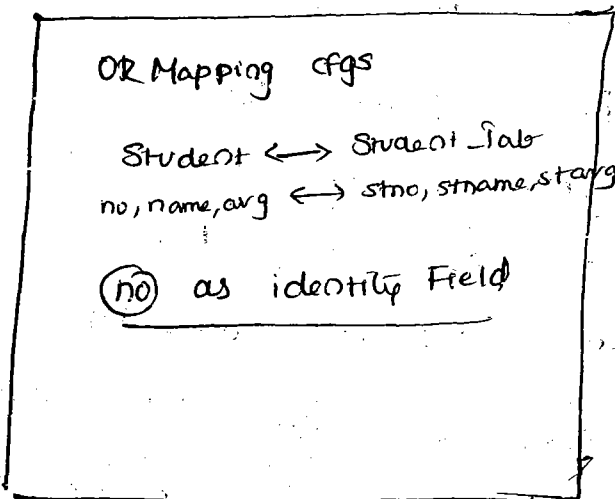 OR Mapping cfgs
Student <-> Student_Tab
no, name, avg <-> stno, stname, starg
no as identity Field